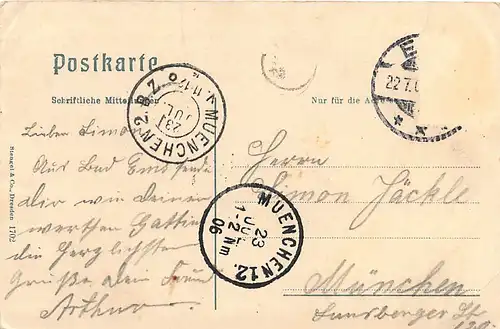 Postkarte
Schriftliche Mitteilungen
Nur für die
MUENCHEN 2 B.Z.
23 JUL
22.7.
Stengel & Co., Dresden 1702
Lieber Simon
Aus Bad Ems sende
Dir wie Deiner
werthen Gattin
die herzlichsten
Grüße Dein Freund
Arthur
Herrn
Simon Jäckle
München
Landsberger St
MUENCHEN 12.
23
JUL
1-2 Nm
06